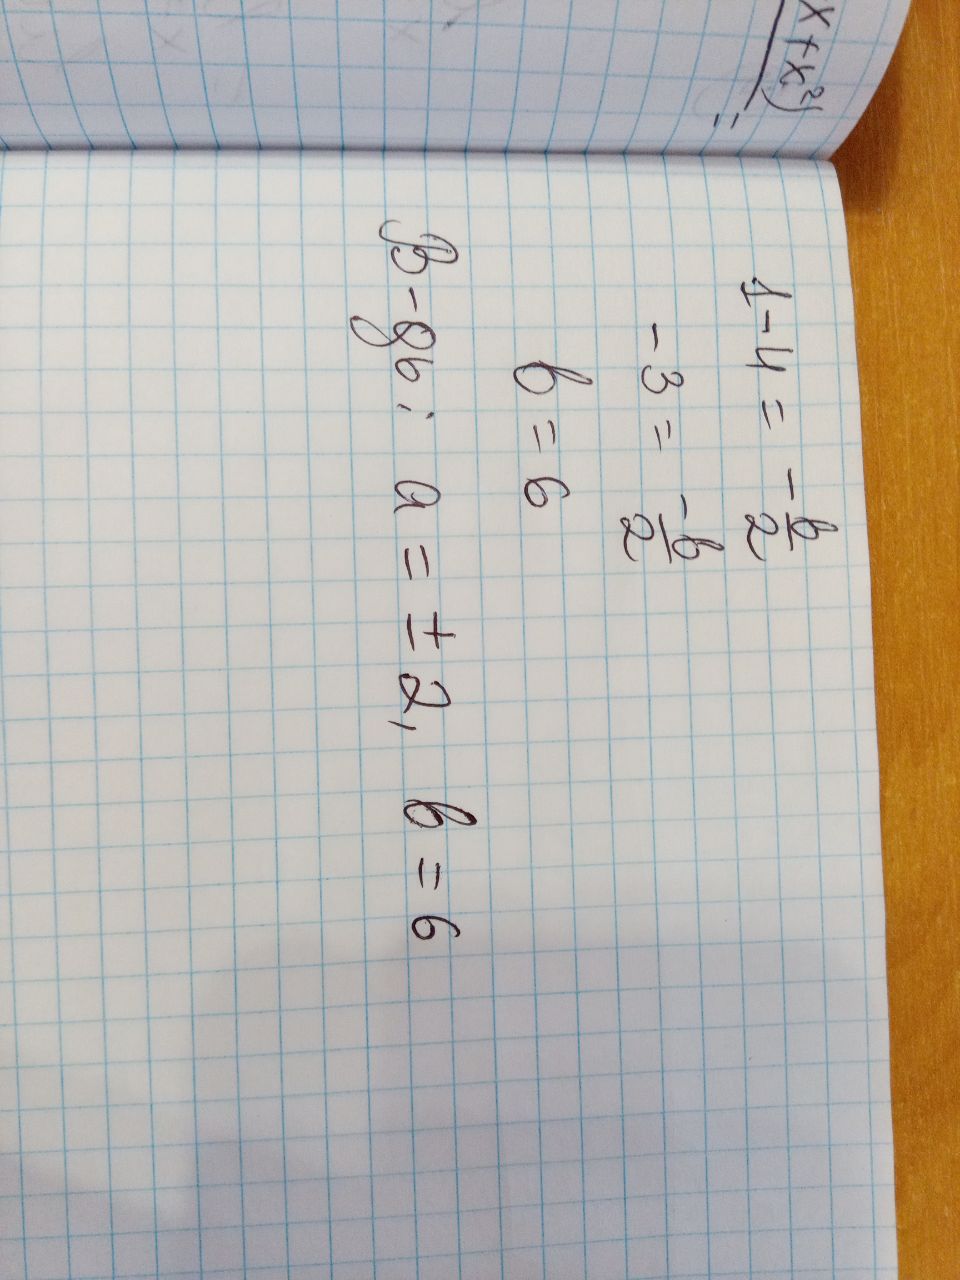 x + x²)
=
1 - 4 = - b/2
- 3 = -b/2
b = 6
В-дь: a = ± 2, b = 6